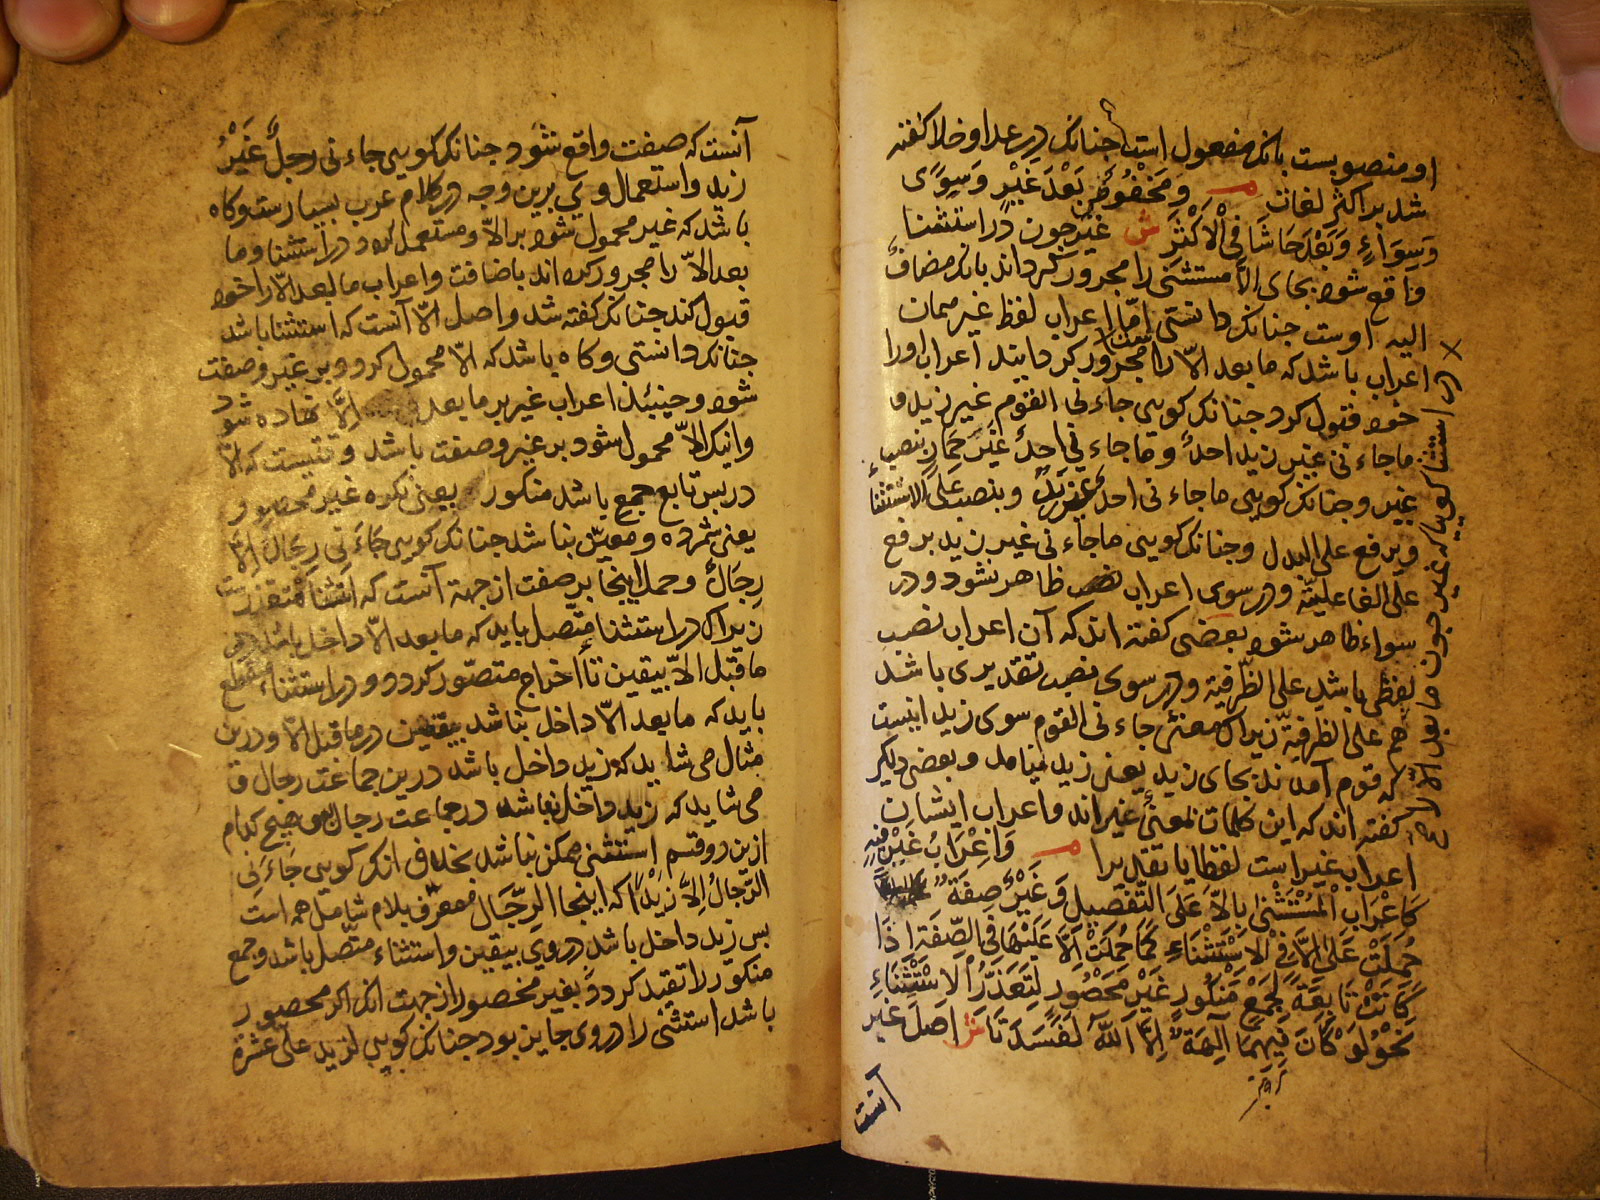 او منصوبست بانک مفعول است جنانک در عدا و خلا کفته
شد بر اکثر لغات م ومخفوض بعد غیر وسوی
وسواء وبعد حاشا فی الاکثر ش غیر جون در استثنا
واقع شود بجای الا مستثنی را مجرور کرداند بانک مضاف
الیه اوست جنانک دانستی اما اعراب لفظ غیر همان
اعراب باشد که ما بعد الا را مجرور کردانید اعراب اورا
خود قبول کرد جنانک کویی جاءنی القوم غیر زید و
ماجاءنی غیر زید احد و ماجاءنی احد غیر حمار بنصب
غیر و جنانک کویی ماجاءنی احد غیر زید و بنصب علی الاستثنا
و برفع علی البدل و جنانک کویی ماجاءنی غیر زید برفع
علی الفاعلیة و در سوی اعراب نصب ظاهر نشود و در
سواء ظاهر شود بعضی کفته اند که آن اعراب نصب
لفظی باشد علی الظرفیة و در سوی نصب تقدیری باشد
هم علی الظرفیة زیراک معنئ جاءنی القوم سوی زید اینست
که قوم آمدند بجای زید یعنی زید نیامد و بعضی دیکر
کفته اند که این کلمات بمعنئ غیر اند و اعراب ایشان
اعراب غیر است لفظا یا تقدیرا م واعراب غیر فیه
کاعراب المستثنی بالا علی التفصیل وغیر صفة
حملت علی الا فی الاستثناء کما حملت الا علیها فی الصفة اذا
کانت تابعة لجمع منکور غیر محصور لتعذر الاستثناء
نحو لو کان فیهما آلهة الا الله لفسدتا ش اصل غیر
آنست
در استثنا کویا که غیر جون ما بعد الا را
آنست که صفت واقع شود جنانک کویی جاءنی رجل غیر
زید و استعمال وی برین وجه در کلام عرب بسیارست و کاه
باشد که غیر محمول شود بر الا و مستعمل کردد در استثنا و ما
بعد الا را مجرور کرده اند باضافت و اعراب ما بعد الا را خود
قبول کند جنانک کفته شد و اصل الا آنست که استثنا باشد
جنانک دانستی و کاه باشد که الا محمول کردد بر غیر و صفت
شود و حینئذ اعراب غیر بر ما بعد الا نهاده شود
و اینک الا محمول شود بر غیر و صفت باشد وقتیست که الا
در پس تابع جمع باشد منکور یعنی نکره غیر محصور
یعنی شمرده و معین نباشد جنانک کویی جاءنی رجال الا
رجال و حمل اینجا بر صفت از جهة آنست که استثنا متعذرست
زیراک در استثنا متصل باید که ما بعد الا داخل باشد در
ما قبل الا بیقین تا اخراج متصور کردد و در استثناء منقطع
باید که ما بعد الا داخل نباشد بیقین در ما قبل الا و درین
مثال می شاید که زید داخل باشد درین جماعت رجال و
می شاید که زید داخل نباشد در جماعت رجال و هیچ کدام
ازین دو قسم استثنی ممکن نباشد بخلاف انک کویی جاءنی
الرجال الا زیدا که اینجا الرجال معرف بلام شامل همه است
پس زید داخل باشد در وی بیقین و استثناء متصل باشد و جمع
منکور را تقید کرد و بغیر محصور از جهت انک اکر محصور
باشد استثنی را در وی جایز بود جنانک کویی لزید علی عشرة